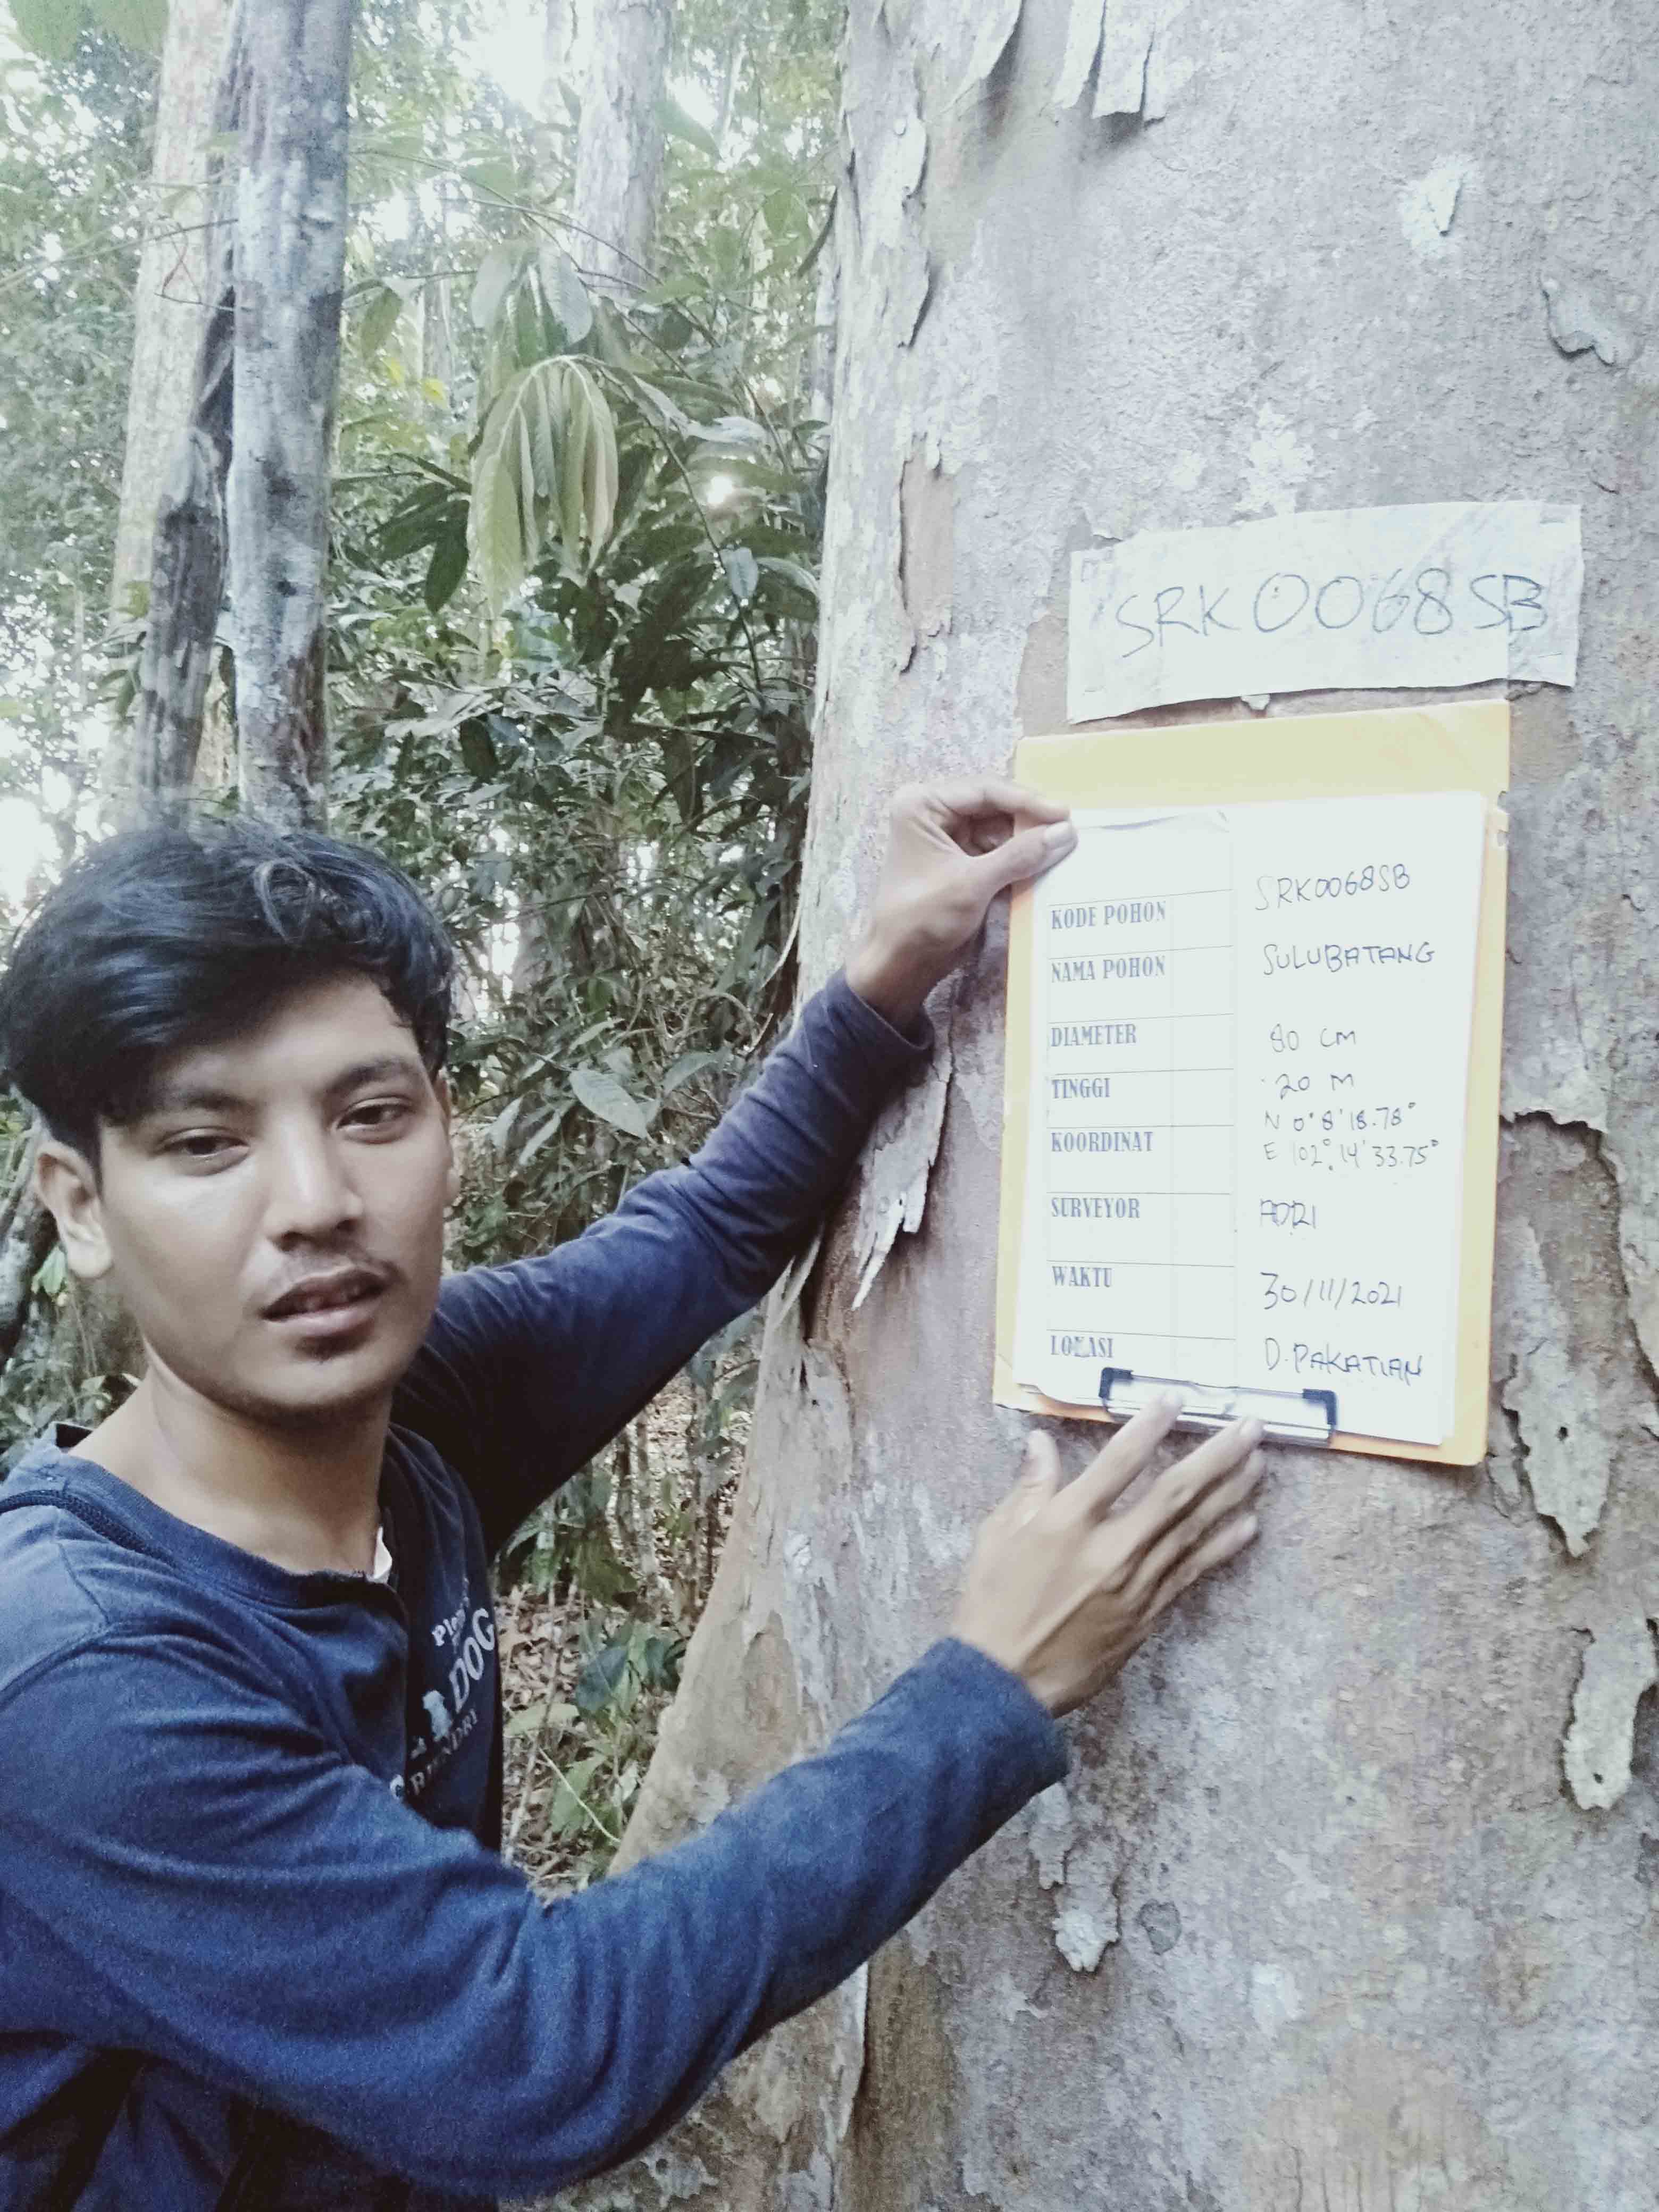 SRK0068SB
KODE POHON SRK0068SB
NAMA POHON SULUBATANG
DIAMETER 80 CM
TINGGI 20 M
KOORDINAT N 0°8'18.78°
E 102°14'33.75°
SURVEYOR ADRI
WAKTU 30/11/2021
LOKASI D.PAKATIAN
DOG